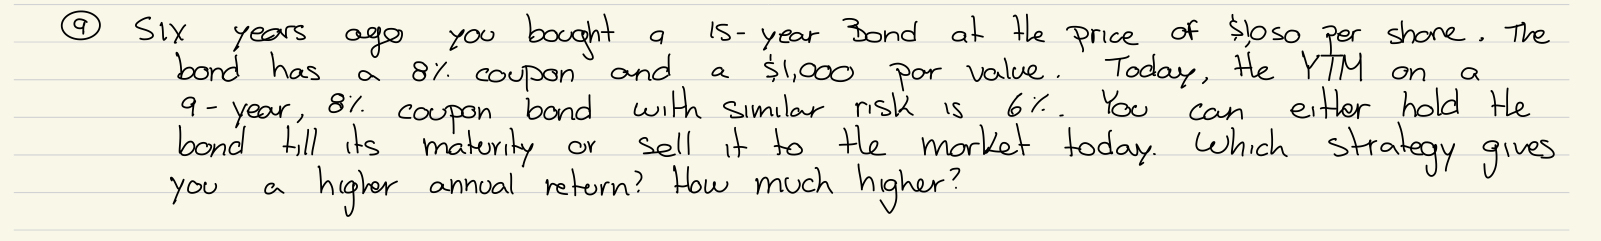 9 Six years ago you bought a 15-year Bond at the price of $1050 per share. The
bond has a 8% coupon and a $1,000 par value. Today, the YTM on a
9-year, 8% coupon bond with similar risk is 6%. You can either hold the
bond till its maturity or sell it to the market today. Which strategy gives
you a higher annual return? How much higher?